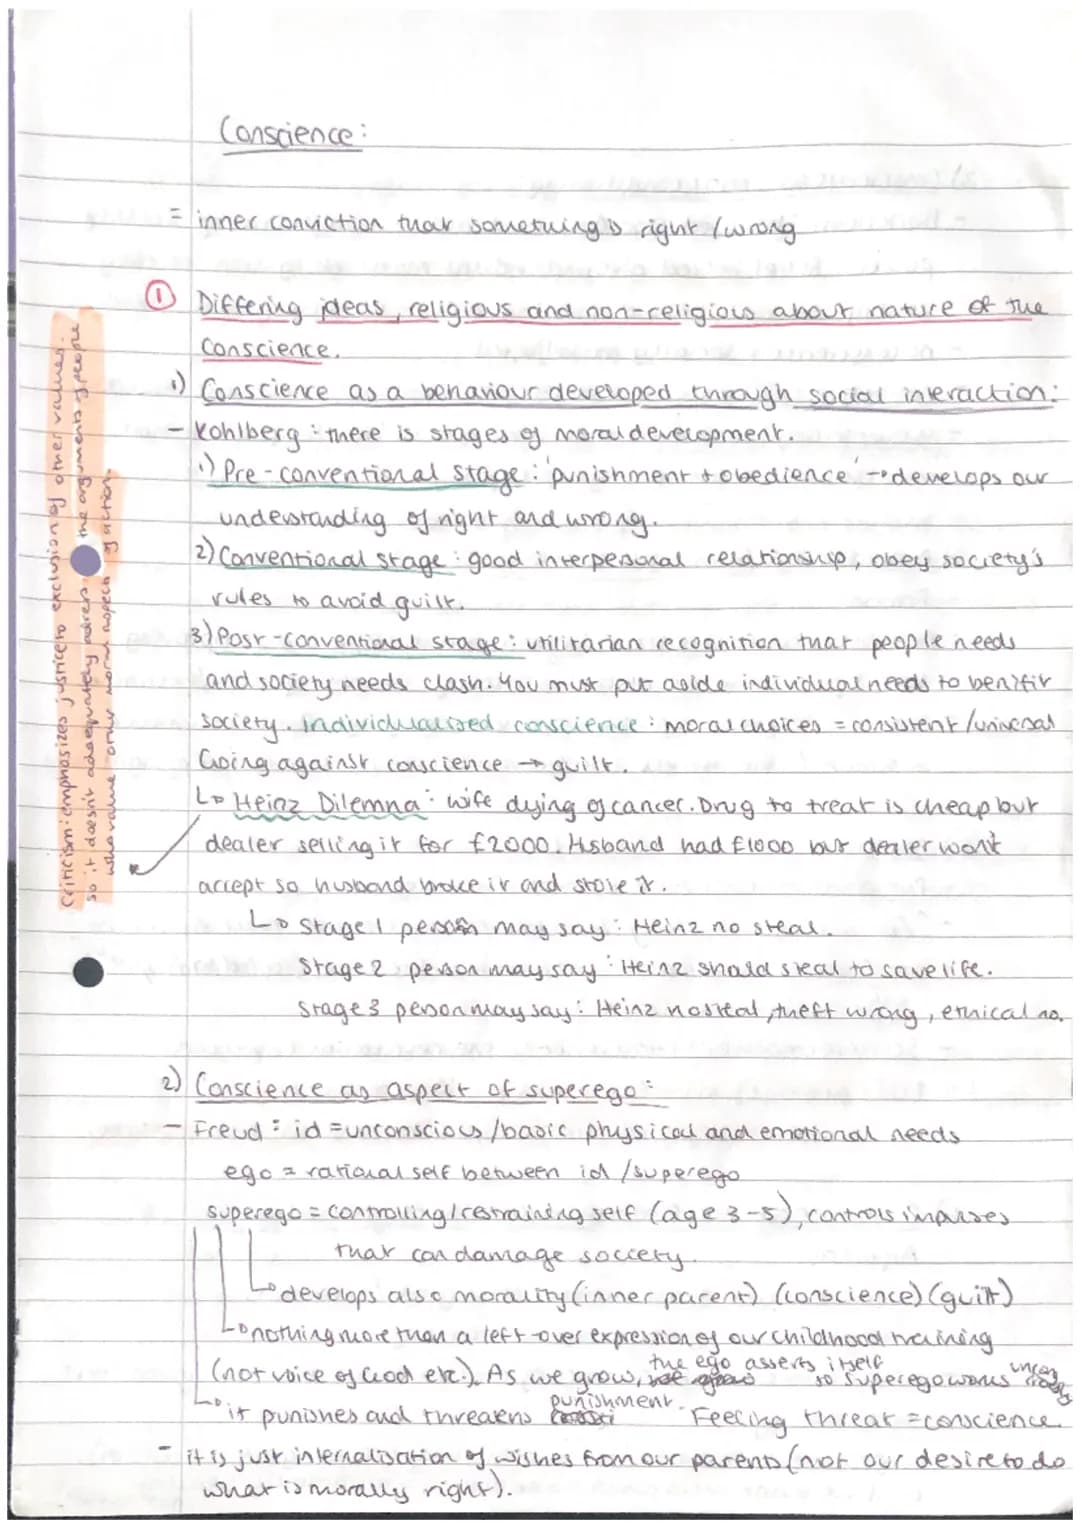 Conscience:
= inner conviction that something is right / wrong
① Differing ideas, religious and non-religious about nature of the
Conscience.
1) Conscience as a behaviour developed through social interaction:
- Kohlberg: there is stages of moral development.
1) Pre-conventional stage: 'punishment + obedience' → develops our
understanding of right and wrong.
2) Conventional stage: good interpersonal relationship, obey society's
rules to avoid guilt.
3) Post-conventional stage: utilitarian recognition that people needs
and society needs clash. You must put aside individual needs to benifit
society. Individualised conscience: moral choices = consistent/universal
Going against conscience → guilt.
↳ Heinz Dilemna: wife dying of cancer. Drug to treat is cheap but
dealer selling it for £2000. Husband had £1000 but dealer won't
accept so husband broke in and stole it.
↳ Stage 1 person may say: Heinz no steal.
Stage 2 person may say: Heinz should steal to save life.
Stage 3 person may say: Heinz no steal, theft wrong, ethical no.
Criticism: emphasizes justice to exclusion of other values.
so it doesn't adequately adress the arguments of people
who value other moral aspects of action.
2) Conscience as aspect of superego:
- Freud: id = unconscious / basic physical and emotional needs
ego = rational self between id / superego
superego = controlling/restraining self (age 3-5), controls impulses
that can damage society.
↳ develops also morality (inner parent) (conscience) (guilt)
↳ nothing more than a left-over expression of our childhood training
(not voice of God etc.). As we grow, the ego asserts itself so superego works
↳ it punishes and threatens punishment. Feeling threat = conscience.
- it is just internalisation of wishes from our parents (not our desire to do
what is morally right).